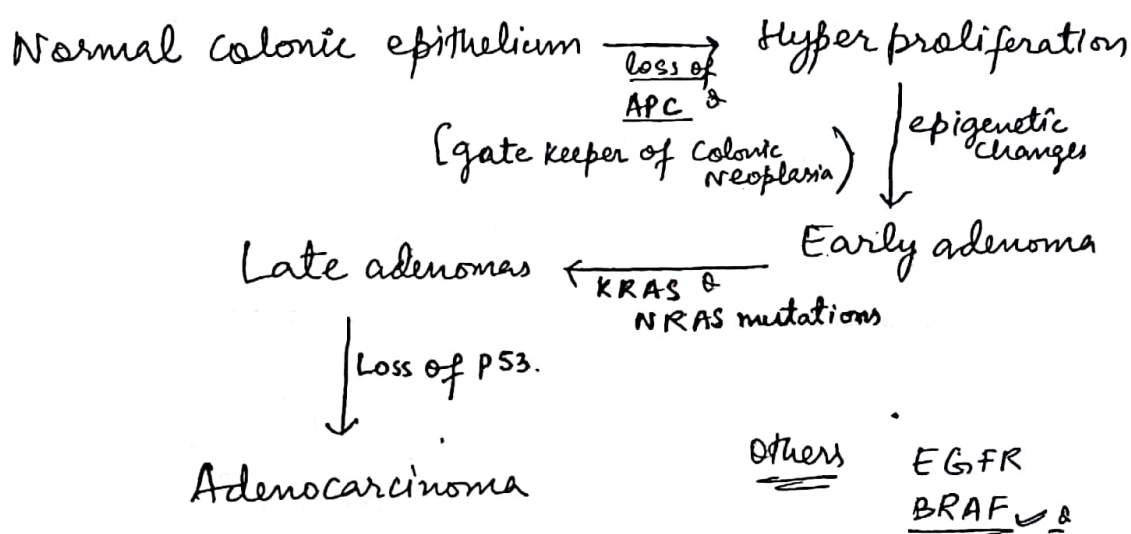 Normal colonic epithelium → Hyper proliferation
loss of
APC
(gate keeper of colonic
neoplasia)
epigenetic
changes
Early adenoma
Late adenomas
KRAS &
NRAS mutations
Loss of P53.
Adenocarcinoma
Others EGFR
BRAF ✓